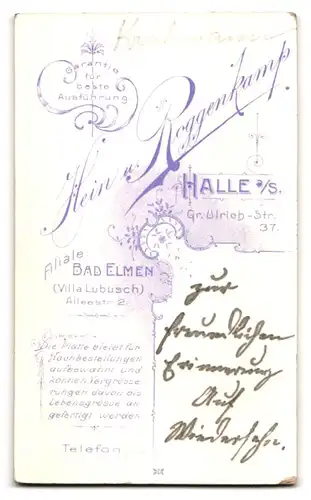 Garantie
für
beste
Ausführung
Hein u. Roggenkamp.
HALLE a/S.
Gr. Ulrich-Str.
37.
Filiale
BAD ELMEN
(Villa Lubusch)
Alleestr. 2.
Die Platte bleibt für
Nachbestellungen
aufbewahrt und
können Vergrösse
rungen davon bis
Lebensgrösse an
gefertigt werden
Telefon
zur
freundlichen
Erinnerung
Auf
Wiedersehn.